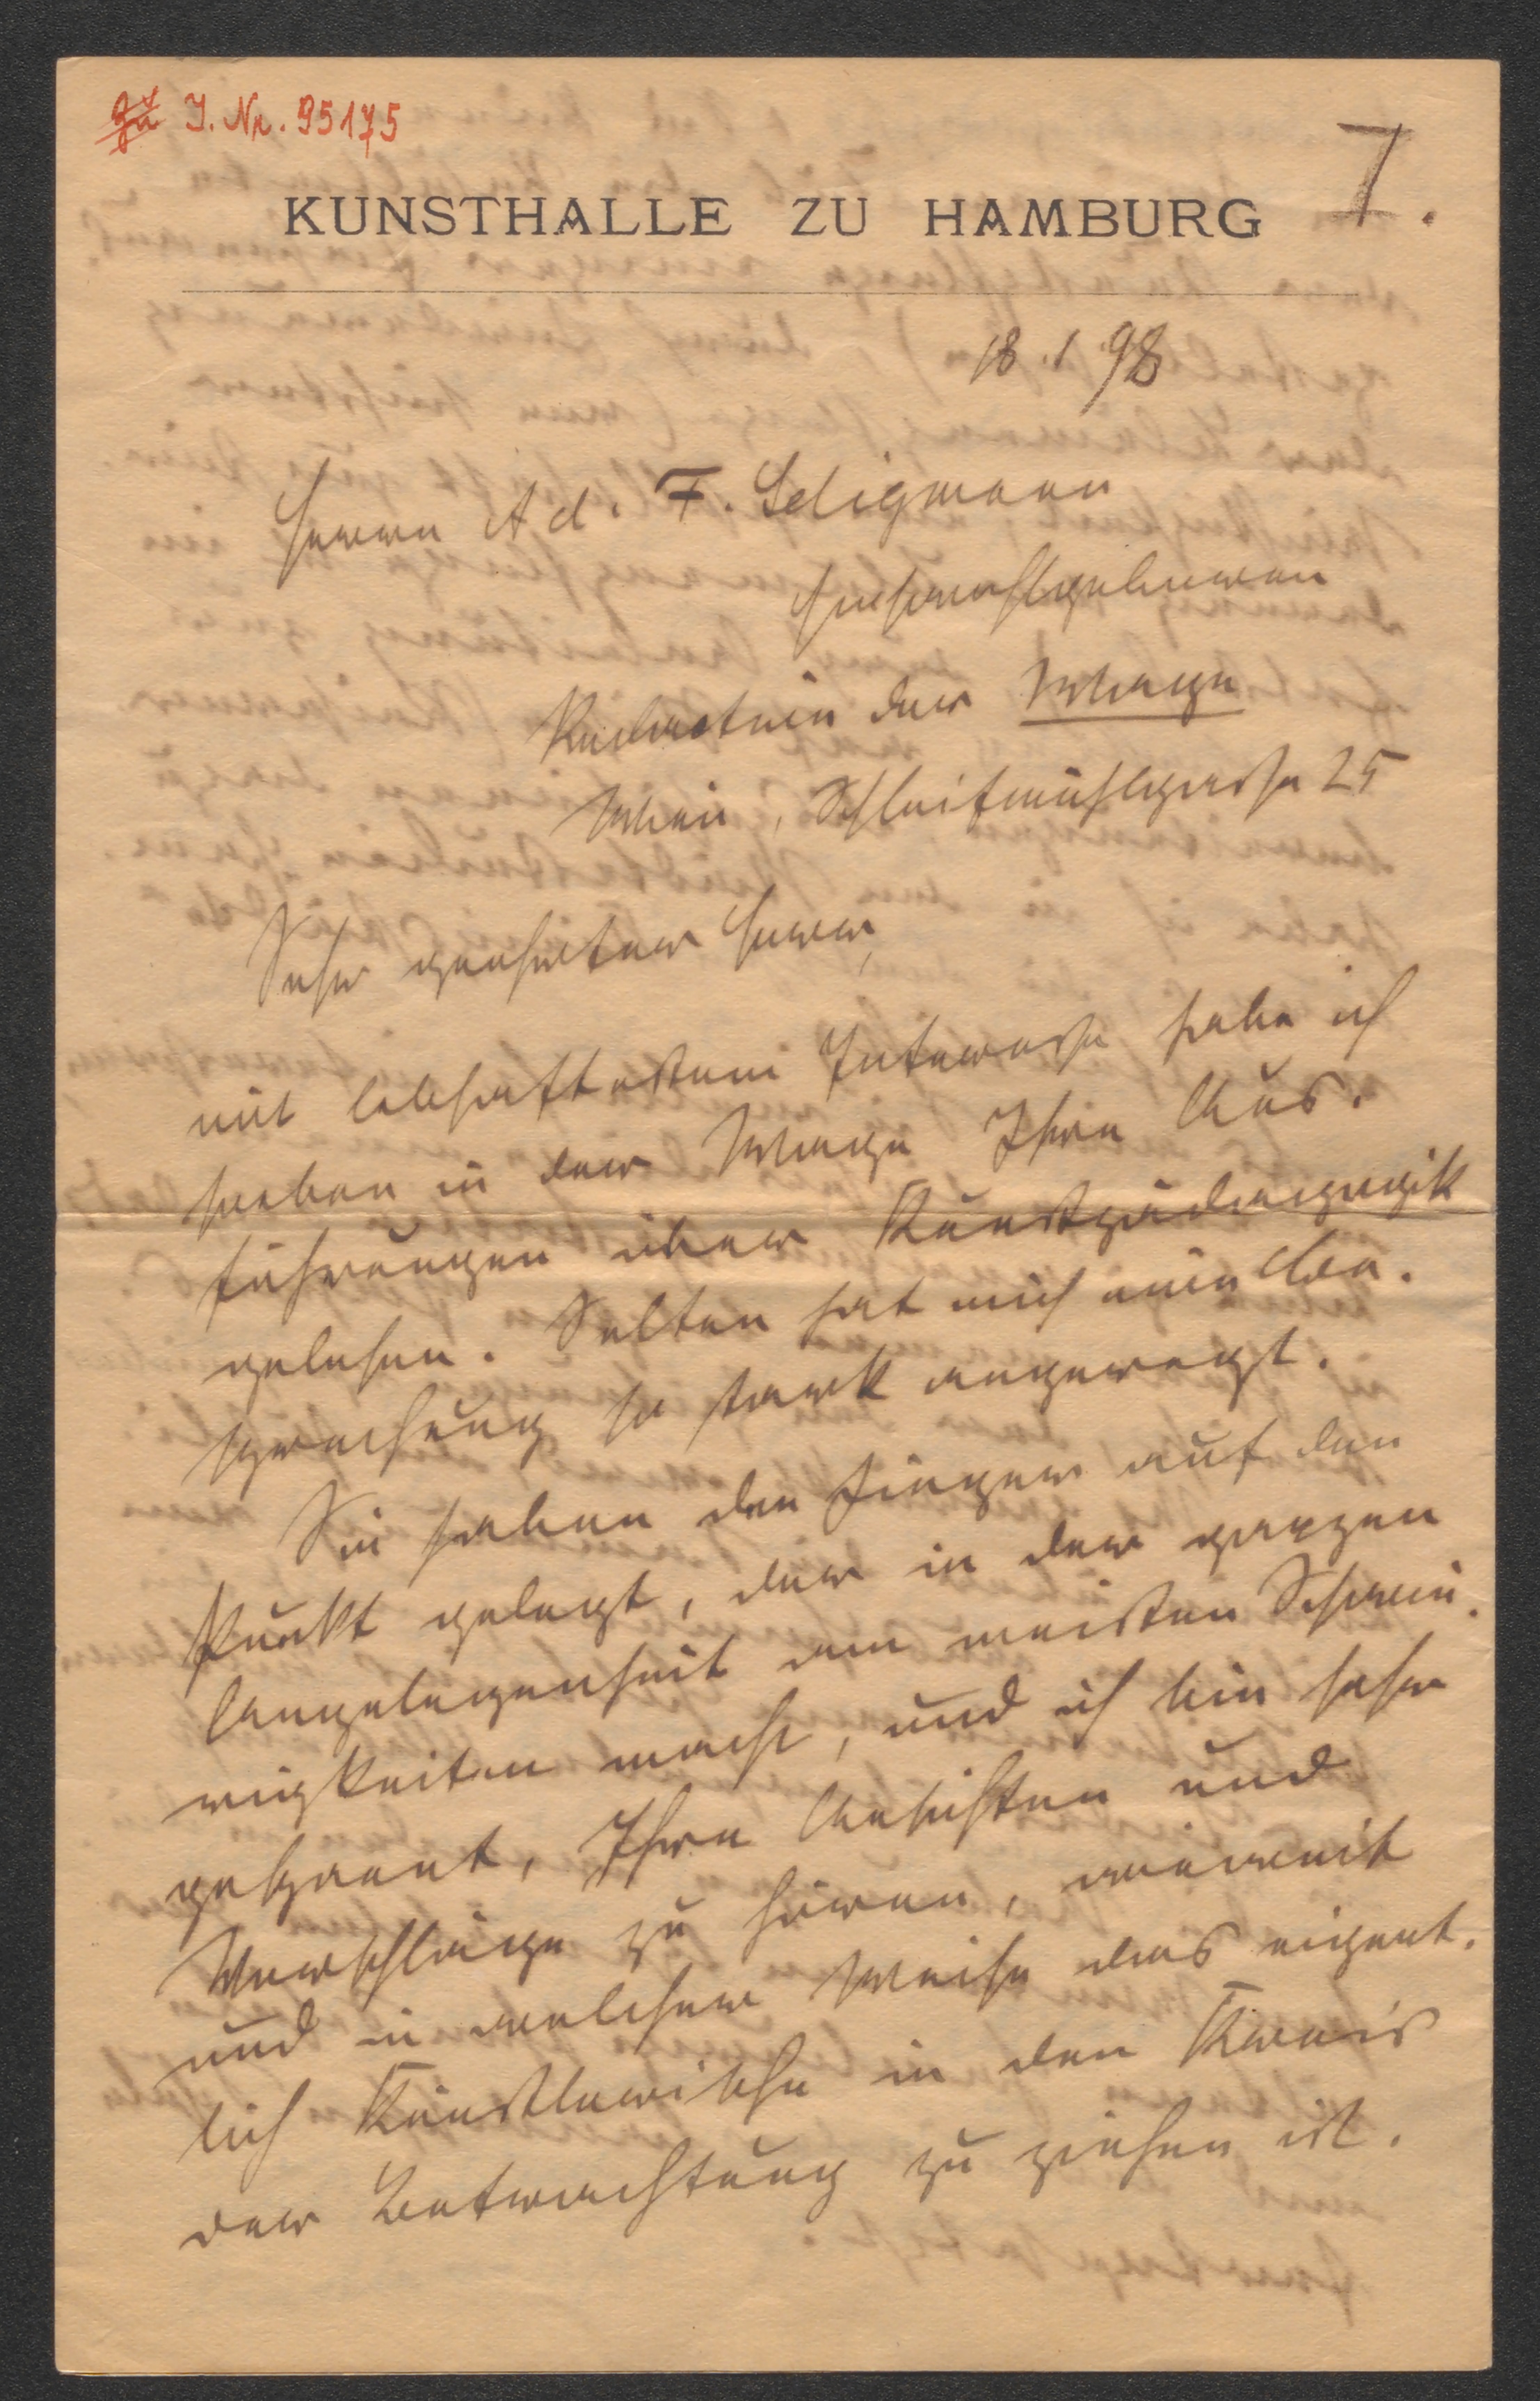 zu I. Nr. 95175
7.
KUNSTHALLE ZU HAMBURG
18.1.98
Herrn Ad. F. Seligmann
Hochwohlgeboren
Redaction der Wage
Wien, Schleifmühlgasse 25
Sehr geehrter Herr,
mit lebhaftestem Interesse habe ich
soeben in der Wage Ihre Aus-
führungen über Kunstpädagogik
gelesen. Selten hat mich eine Be-
sprechung so stark angeregt.
Sie haben den Finger auf den
Punkt gelegt, der in der ganzen
Angelegenheit am meisten Schwie-
rigkeiten macht, und ich bin sehr
gespannt, Ihre Ansichten und
Vorschläge zu hören, wieweit
und in welcher Weise das eigent-
lich Künstlerische in den Kreis
der Betrachtung zu ziehen ist.